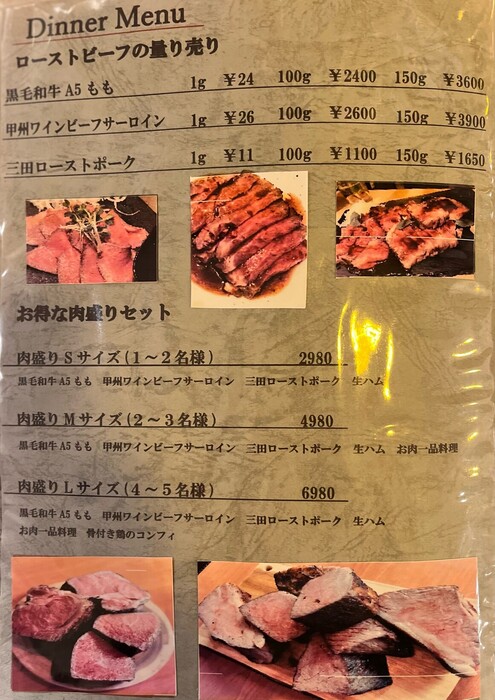 Dinner Menu
ローストビーフの量り売り
黒毛和牛A5もも 1g ¥24 100g ¥2400 150g ¥3600
甲州ワインビーフサーロイン 1g ¥26 100g ¥2600 150g ¥3900
三田ローストポーク 1g ¥11 100g ¥1100 150g ¥1650
お得な肉盛りセット
肉盛りSサイズ(1～2名様) 2980
黒毛和牛A5もも 甲州ワインビーフサーロイン 三田ローストポーク 生ハム
肉盛りMサイズ(2～3名様) 4980
黒毛和牛A5もも 甲州ワインビーフサーロイン 三田ローストポーク 生ハム お肉一品料理
肉盛りLサイズ(4～5名様) 6980
黒毛和牛A5もも 甲州ワインビーフサーロイン 三田ローストポーク 生ハム
お肉一品料理 骨付き鶏のコンフィ